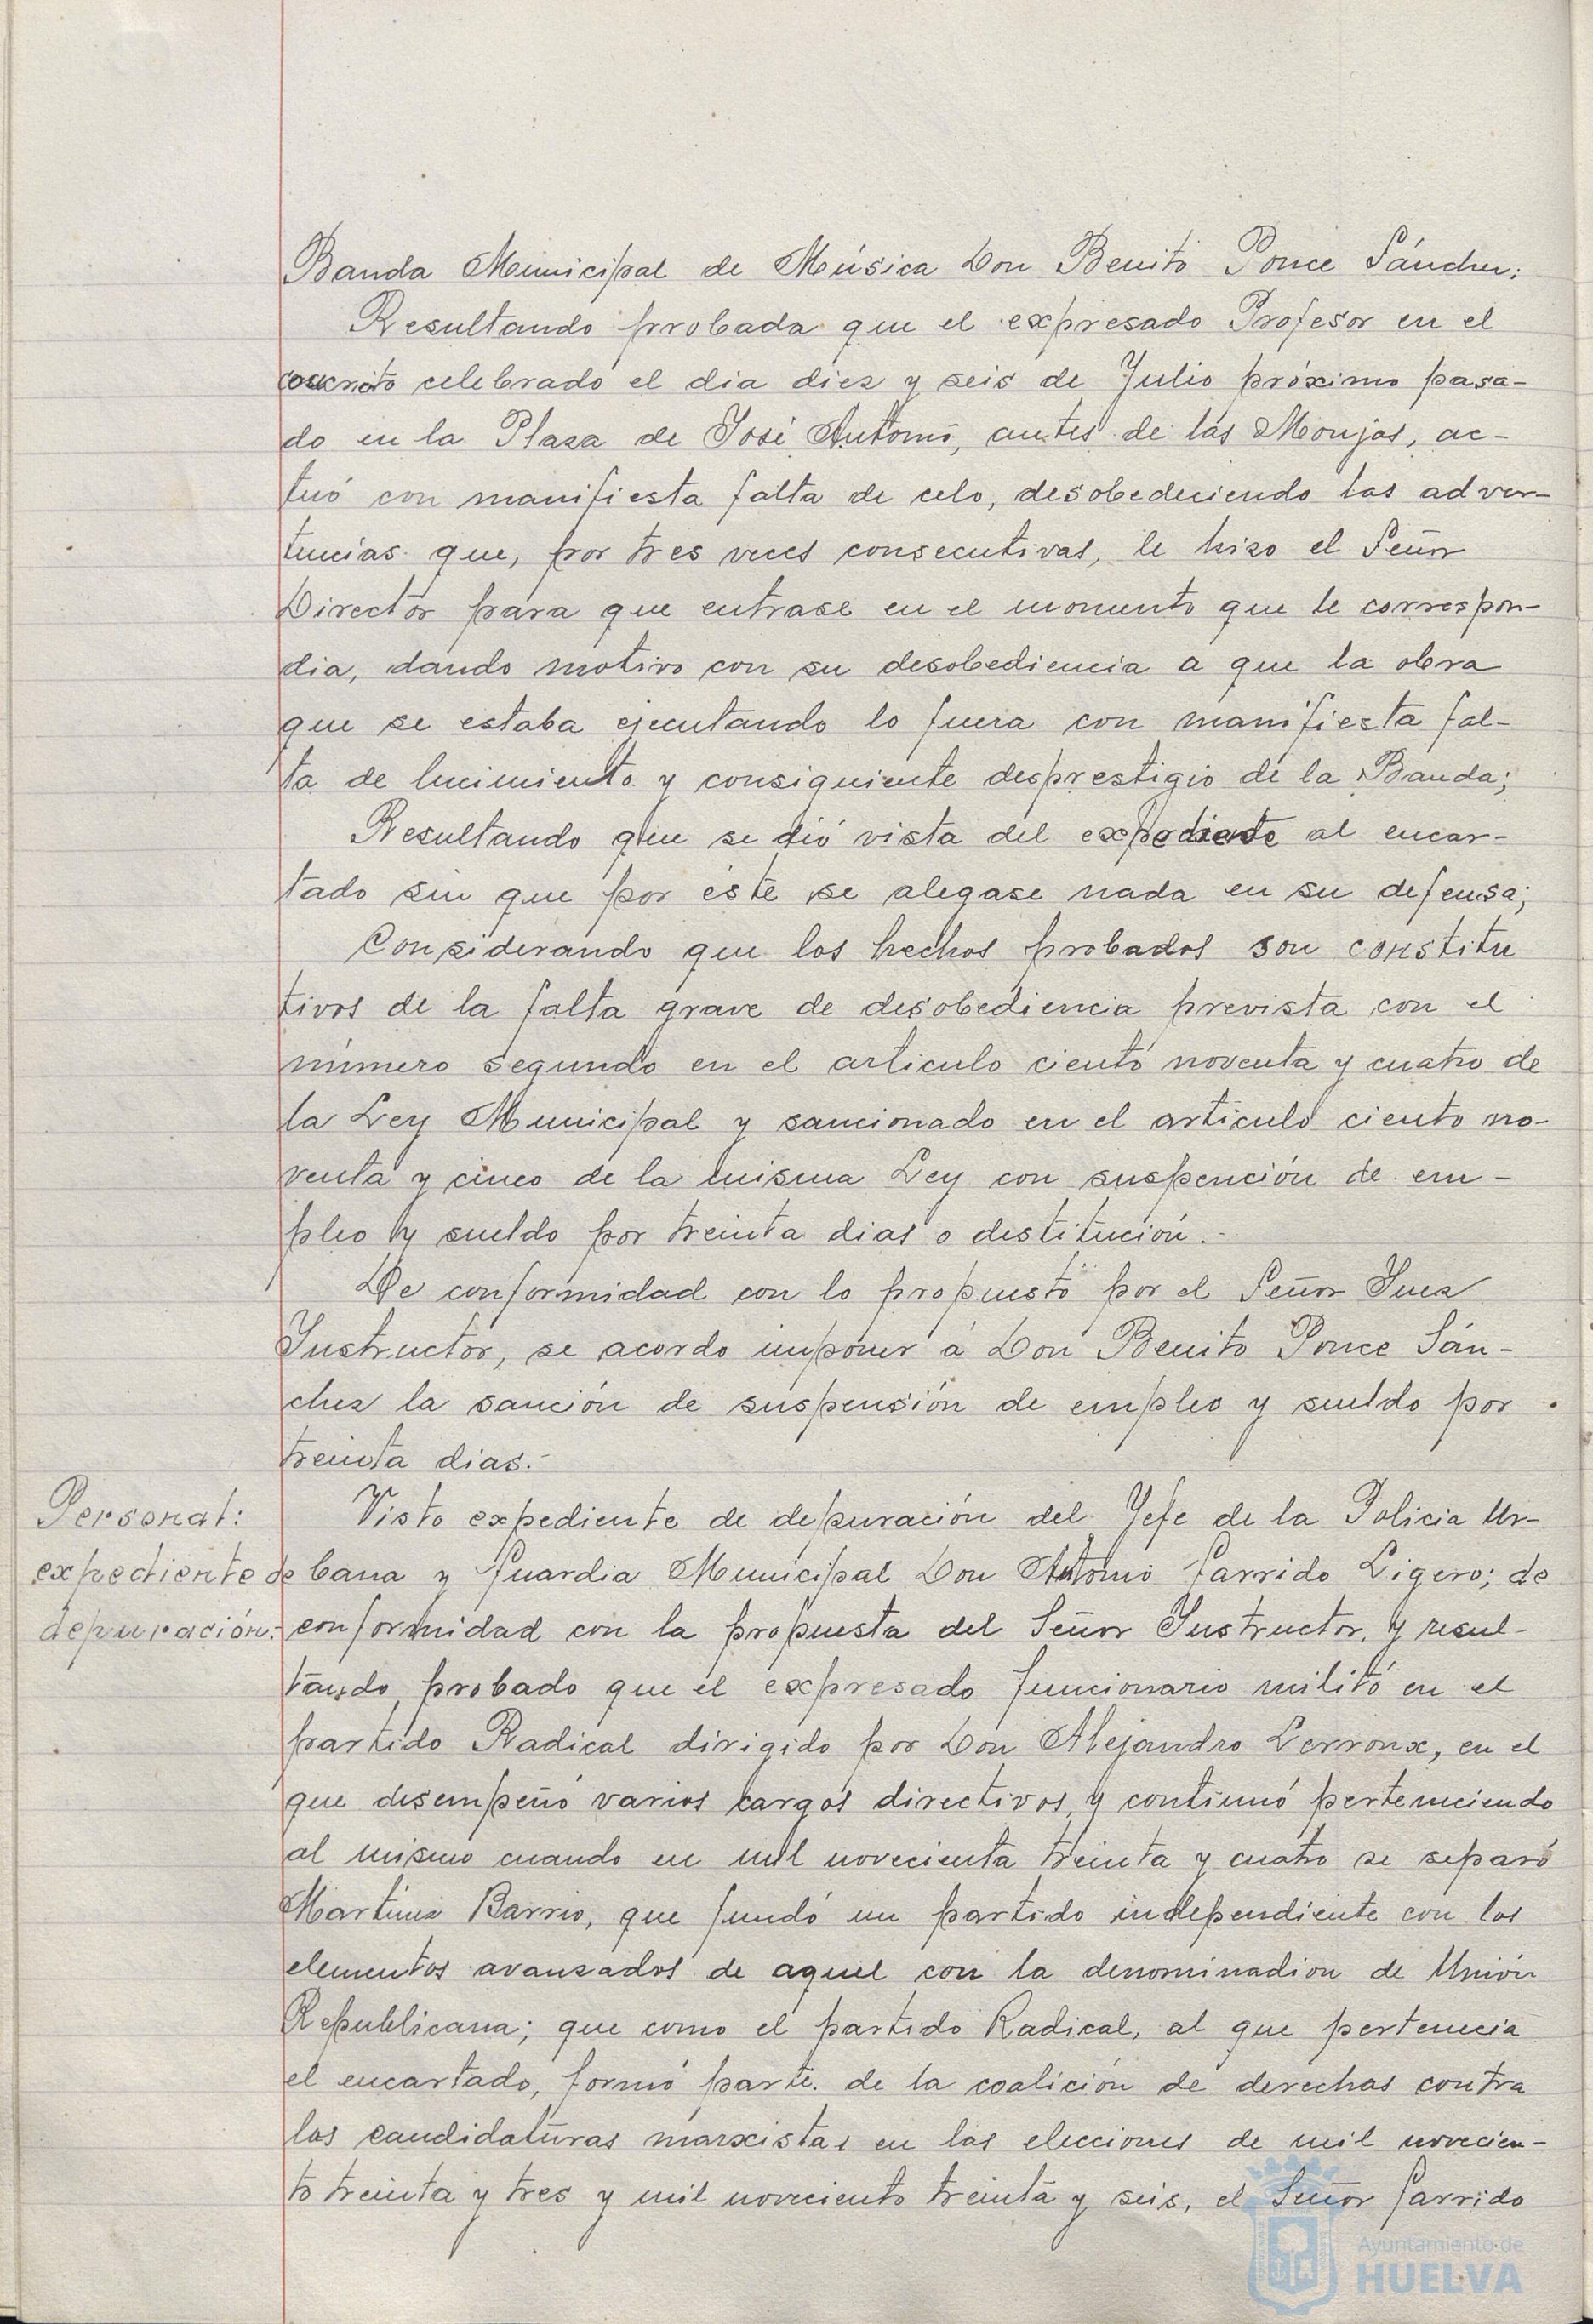 Banda Municipal de Música Don Benito Ponce Sánchez:
Resultando probada que el expresado Profesor en el
concierto celebrado el dia diez y seis de Julio próximo pasa-
do en la Plaza de José Antonio, antes de las Monjas, ac-
tuó con manifiesta falta de celo, desobedeciendo las adver-
tencias que, por tres veces consecutivas, le hizo el Señor
Director para que entrase en el momento que le correspon-
dia, dando motivo con su desobediencia a que la obra
que se estaba ejecutando lo fuera con manifiesta fal-
ta de lucimiento y consiguiente desprestigio de la Banda;
Resultando que se dió vista del expediente al encar-
tado sin que por éste se alegase nada en su defensa;
Considerando que los hechos probados son constitu
tivos de la falta grave de desobediencia prevista con el
número segundo en el articulo ciento noventa y cuatro de
la Ley Municipal y sancionado en el articulo ciento no-
venta y cinco de la misma Ley con suspención de em-
pleo y sueldo por treinta dias o destitución.-
De conformidad con lo propuesto por el Señor Juez
Instructor, se acordo imponer á Don Benito Ponce Sán-
chez la sanción de suspensión de empleo y sueldo por
treinta dias.-
Personal:
expediente de
depuración.-
Visto expediente de depuración del Jefe de la Policia Ur-
bana y Guardia Municipal Don Antonio Garrido Ligero; de
conformidad con la propuesta del Señor Instructor, y resul-
tando probado que el expresado funcionario militó en el
partido Radical dirigido por Don Alejandro Lerroux, en el
que desempeñó varios cargos directivos, y continuó perteneciendo
al mismo cuando en mil novecienta treinta y cuatro se separó
Martínez Barrio, que fundó un partido independiente con los
elementos avanzados de aquel con la denominadion de Unión
Republicana; que como el partido Radical, al que pertenecia
el encartado, formó parte. de la coalición de derechas contra
las candidaturas marxistas en las elecciones de mil novecien-
to treinta y tres y mil noveciento treinta y seis, el Señor Garrido
Ayuntamiento de
HUELVA